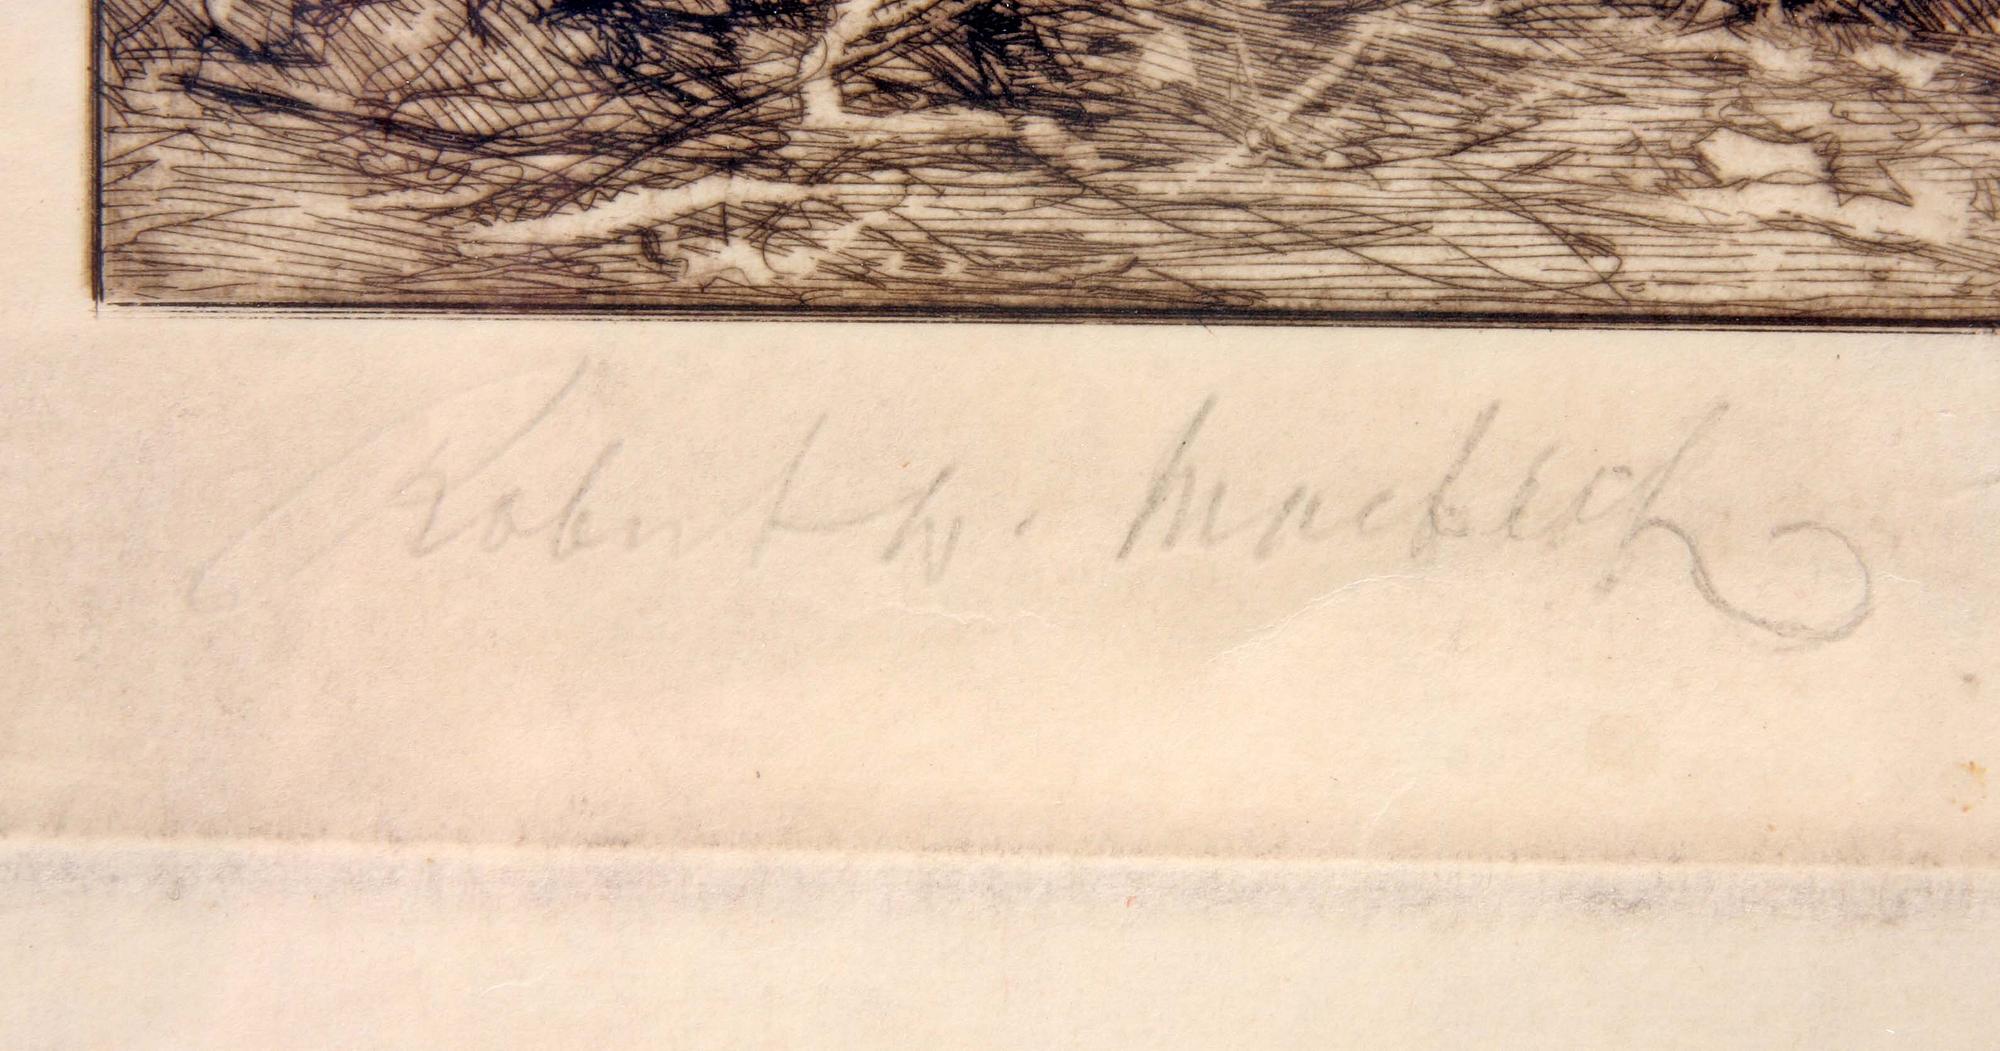 Robert W. Macbeth